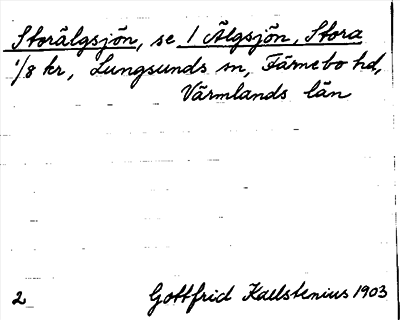 Storälgsjön, se 1 Älgsjön, Stora
1/8 kr, Lungsunds sn, Färnebo hd,
Värmlands län
2 Gottfrid Kallstenius 1903